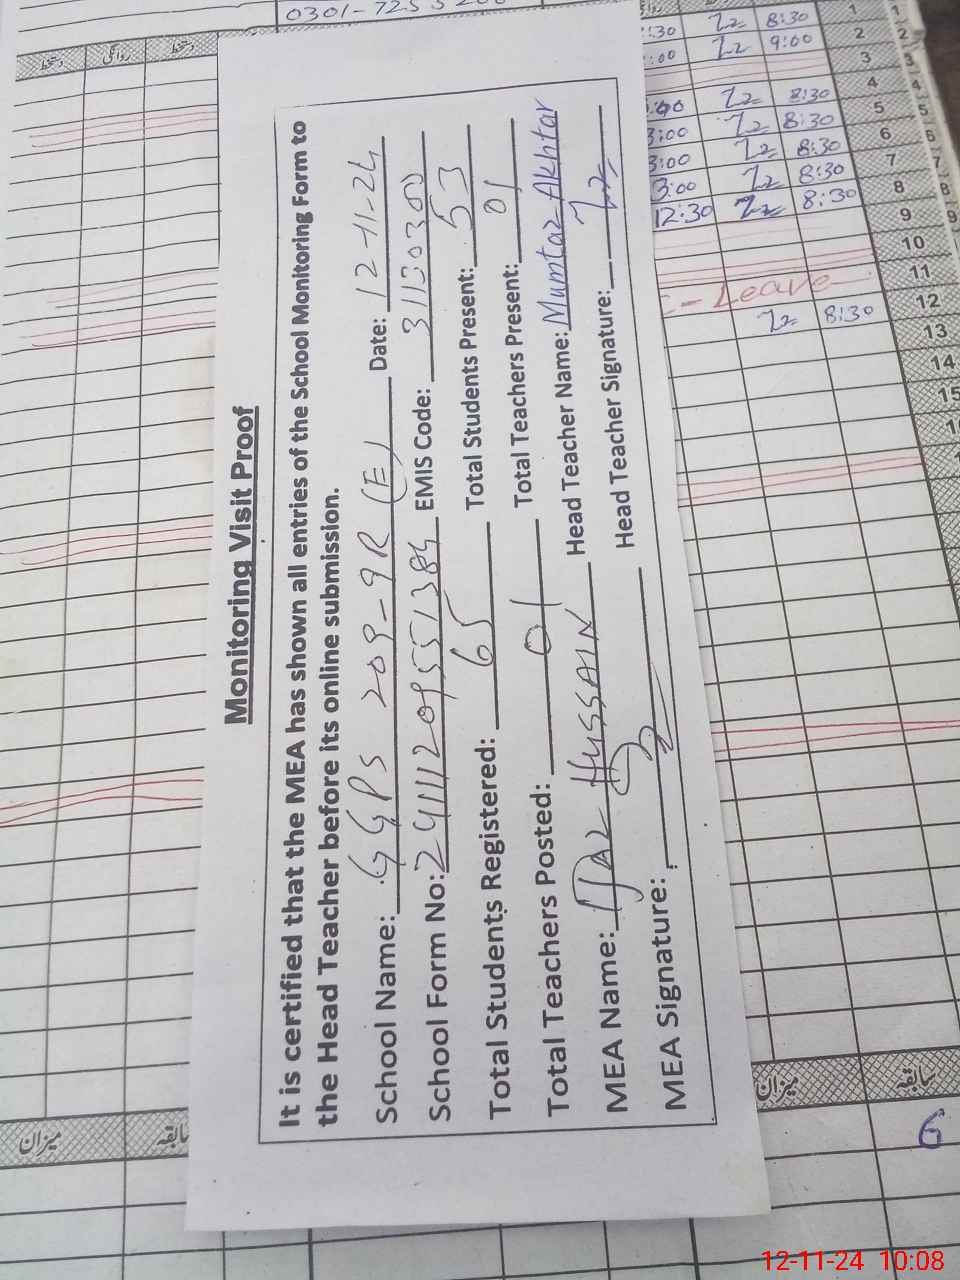 Monitoring Visit Proof
It is certified that the MEA has shown all entries of the School Monitoring Form to
the Head Teacher before its online submission.
School Name: GGPS 209-9R (E) Date: 12-11-24
School Form No: EMIS Code:
Total Students Registered: 65 Total Students Present: 53
Total Teachers Posted: 01 Total Teachers Present: 01
MEA Name: IJAZ HUSSAIN Head Teacher Name: Mumtaz Akhtar
MEA Signature: Head Teacher Signature:
دستخط روانگی دستخط
:30 8:30 1
:00 9:00 2
3
4
8:30 5
3:00 8:30 6
3:00 8:30 7
3:00 8:30 8
12:30 8:30 9
10
11
Leave 12
8:30 13
14
15
میزان سابقہ
میزان سابقہ
6
12-11-24 10:08